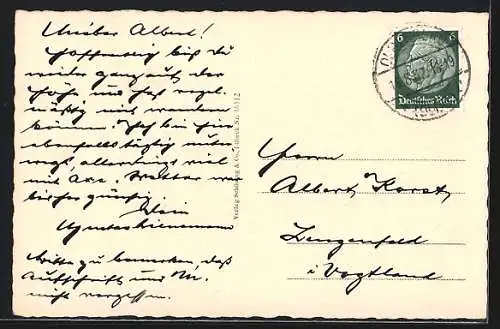 Lieber Albert!
Hoffentlich bist Du
wieder ganz auf der
Höhe und hast regel-
mäßig mit
können. Ich bin hier
ebenfalls tüchtig unter-
wegs, allerdings viel
mit Axe. Wetter war
bisher günstig
Dein
Bitte zu bemerken, daß
Aufschrift und Nr.
nicht vergessen.
Verlag Schöning & Co., Lübeck
6
Deutsches Reich
Herrn
Albert Korst
Lengenfeld
i. Vogtland